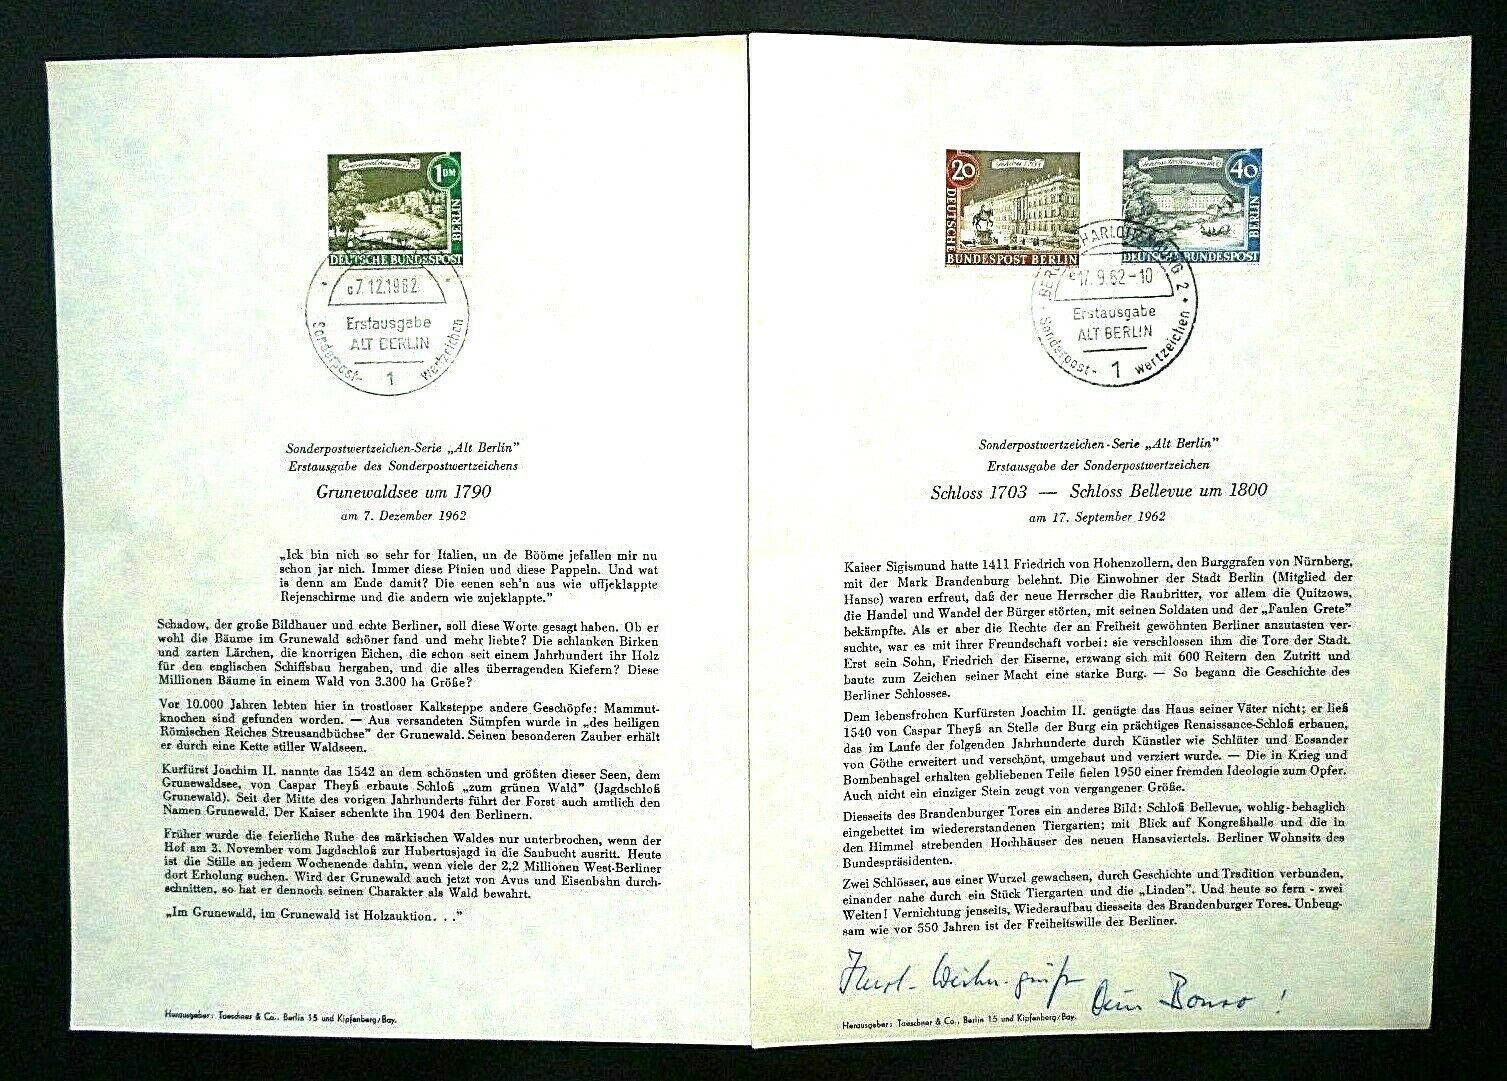 Grunewaldsee um 1790
1 DM
BERLIN
DEUTSCHE BUNDESPOST
c7.12.1962
Erstausgabe
ALT BERLIN
Sonderpost- 1 wertzeichen
Sonderpostwertzeichen-Serie „Alt Berlin”
Erstausgabe des Sonderpostwertzeichens
Grunewaldsee um 1790
am 7. Dezember 1962
„Ick bin nich so sehr for Italien, un de Bööme jefallen mir nu
schon jar nich. Immer diese Pinien und diese Pappeln. Und wat
is denn am Ende damit? Die eenen seh’n aus wie uffjeklappte
Rejenschirme und die andern wie zujeklappte.”
Schadow, der große Bildhauer und echte Berliner, soll diese Worte gesagt haben. Ob er
wohl die Bäume im Grunewald schöner fand und mehr liebte? Die schlanken Birken
und zarten Lärchen, die knorrigen Eichen, die schon seit einem Jahrhundert ihr Holz
für den englischen Schiffsbau hergaben, und die alles überragenden Kiefern? Diese
Millionen Bäume in einem Wald von 3.300 ha Größe?
Vor 10.000 Jahren lebten hier in trostloser Kalksteppe andere Geschöpfe: Mammut-
knochen sind gefunden worden. — Aus versandeten Sümpfen wurde in „des heiligen
Römischen Reiches Streusandbüchse” der Grunewald. Seinen besonderen Zauber erhält
er durch eine Kette stiller Waldseen.
Kurfürst Joachim II. nannte das 1542 an dem schönsten und größten dieser Seen, dem
Grunewaldsee, von Caspar Theyß erbaute Schloß „zum grünen Wald” (Jagdschloß
Grunewald). Seit der Mitte des vorigen Jahrhunderts führt der Forst auch amtlich den
Namen Grunewald. Der Kaiser schenkte ihn 1904 den Berlinern.
Früher wurde die feierliche Ruhe des märkischen Waldes nur unterbrochen, wenn der
Hof am 3. November vom Jagdschloß zur Hubertusjagd in die Saubucht ausritt. Heute
ist die Stille an jedem Wochenende dahin, wenn viele der 2,2 Millionen West-Berliner
dort Erholung suchen. Wird der Grunewald auch jetzt von Avus und Eisenbahn durch-
schnitten, so hat er dennoch seinen Charakter als Wald bewahrt.
„Im Grunewald, im Grunewald ist Holzauktion. . .”
Herausgeber: Taeschner & Co., Berlin 15 und Kipfenberg/Bay.
20
Schloss 1703
DEUTSCHE
BUNDESPOST BERLIN
40
Schloss Bellevue um 1800
BERLIN
DEUTSCHE BUNDESPOST
CHARLOTTENBURG 2
17.9.62-10
Erstausgabe
ALT BERLIN
Sonderpost- 1 wertzeichen
Sonderpostwertzeichen-Serie „Alt Berlin”
Erstausgabe der Sonderpostwertzeichen
Schloss 1703 — Schloss Bellevue um 1800
am 17. September 1962
Kaiser Sigismund hatte 1411 Friedrich von Hohenzollern, den Burggrafen von Nürnberg,
mit der Mark Brandenburg belehnt. Die Einwohner der Stadt Berlin (Mitglied der
Hanse) waren erfreut, daß der neue Herrscher die Raubritter, vor allem die Quitzows,
die Handel und Wandel der Bürger störten, mit seinen Soldaten und der „Faulen Grete”
bekämpfte. Als er aber die Rechte der an Freiheit gewöhnten Berliner anzutasten ver-
suchte, war es mit ihrer Freundschaft vorbei: sie verschlossen ihm die Tore der Stadt.
Erst sein Sohn, Friedrich der Eiserne, erzwang sich mit 600 Reitern den Zutritt und
baute zum Zeichen seiner Macht eine starke Burg. — So begann die Geschichte des
Berliner Schlosses.
Dem lebensfrohen Kurfürsten Joachim II. genügte das Haus seiner Väter nicht; er ließ
1540 von Caspar Theyß an Stelle der Burg ein prächtiges Renaissance-Schloß erbauen,
das im Laufe der folgenden Jahrhunderte durch Künstler wie Schlüter und Eosander
von Göthe erweitert und verschönt, umgebaut und verziert wurde. — Die in Krieg und
Bombenhagel erhalten gebliebenen Teile fielen 1950 einer fremden Ideologie zum Opfer.
Auch nicht ein einziger Stein zeugt von vergangener Größe.
Diesseits des Brandenburger Tores ein anderes Bild: Schloß Bellevue, wohlig-behaglich
eingebettet im wiedererstandenen Tiergarten; mit Blick auf Kongreßhalle und die in
den Himmel strebenden Hochhäuser des neuen Hansaviertels. Berliner Wohnsitz des
Bundespräsidenten.
Zwei Schlösser, aus einer Wurzel gewachsen, durch Geschichte und Tradition verbunden,
einander nahe durch ein Stück Tiergarten und die „Linden”. Und heute so fern - zwei
Welten! Vernichtung jenseits, Wiederaufbau diesseits des Brandenburger Tores. Unbeug-
sam wie vor 550 Jahren ist der Freiheitswille der Berliner.
Dein Bonzo !
Herausgeber: Taeschner & Co., Berlin 15 und Kipfenberg/Bay.